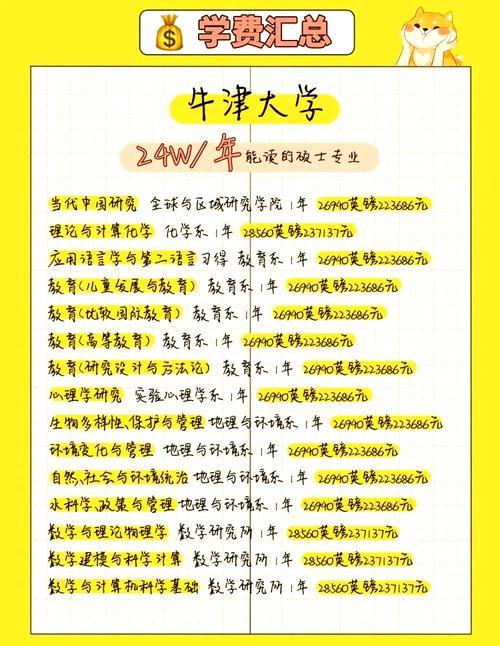 学费汇总
牛津大学
24W/年能读的硕士专业
当代中国研究 全球与区域研究学院 1年 26940英镑223686元
理论与计算化学 化学系 1年 28560英镑237137元
应用语言学与第二语言习得 教育系 1年 26940英镑223686元
教育(儿童发展与教育) 教育系 1年 26940英镑223686元
教育(比较国际教育) 教育系 1年 26940英镑223686元
教育(高等教育) 教育系 1年 26940英镑223686元
教育(研究设计与方法论) 教育系 1年 26940英镑223686元
心理学研究 实验心理学系 1年 26940英镑223686元
生物多样性、保护与管理 地理与环境系 1年 26940英镑223686元
环境变化与管理 地理与环境系 1年 26940英镑223686元
自然、社会与环境统治 地理与环境系 1年 26940英镑223686元
水科学、政策与管理 地理与环境系 1年 26940英镑223686元
数学与理论物理学 数学研究所 1年 28560英镑237137元
数学建模与科学计算 数学研究所 1年 28560英镑237137元
数学与计算机科学基础 数学研究所 1年 28560英镑237137元